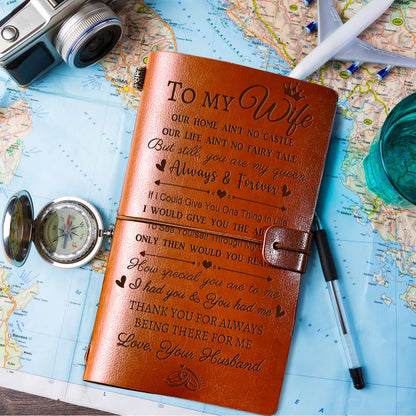 TO MY Wife
OUR HOME AINT NO CASTLE
OUR LIFE AINT NO FAIRY TALE
But still you are my queen
Always & Forever
If I Could Give You One Thing In Life
I WOULD GIVE YOU THE
To See Yourself Through
ONLY THEN WOULD YOU
How special you are to me
I had you & You had me
THANK YOU FOR ALWAYS
BEING THERE FOR ME
Love, Your Husband